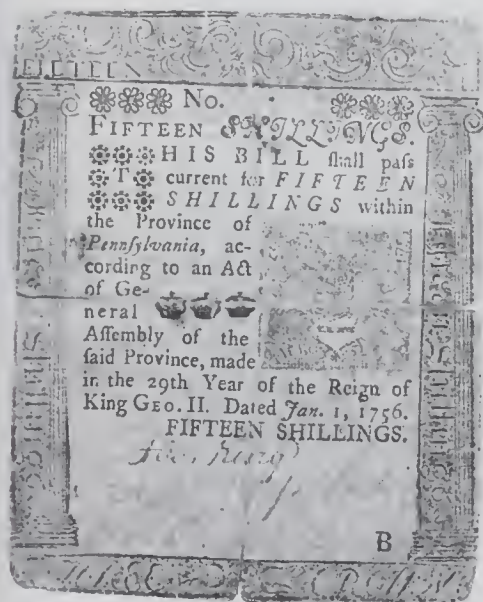 FIFTEEN
No.
FIFTEEN SHILLINGS.
THIS BILL ſhall paſs
current for FIFTEEN
SHILLINGS within
the Province of
Pennſylvania, ac-
cording to an Act
of Ge-
neral
Aſſembly of the
ſaid Province, made
in the 29th Year of the Reign of
King GEO. II. Dated Jan. 1, 1756.
FIFTEEN SHILLINGS.
B